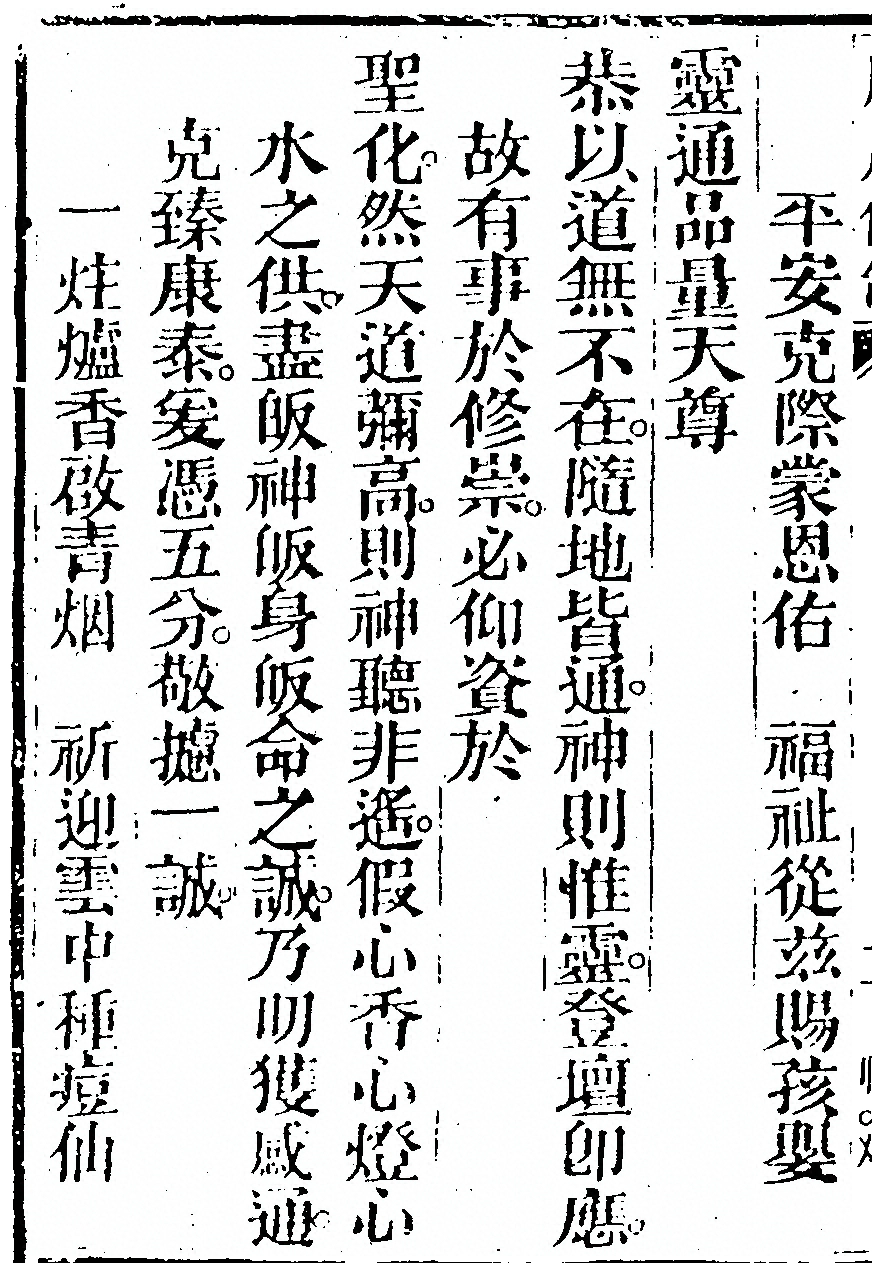 平安克際蒙恩佑　福祉從茲賜孩嬰
靈通品量天尊
恭以道無不在。隨地皆通。神則惟靈。登壇卽應。
故有事於修崇。必仰資於
聖化。然天道彌高。則神聽非遙。假心香心燈心
水之供。盡皈神皈身皈命之誠。乃叨獲感通。
克臻康泰。爰憑五分。敬攄一誠。
一炷爐香啟青烟　祈迎雲中種痘仙